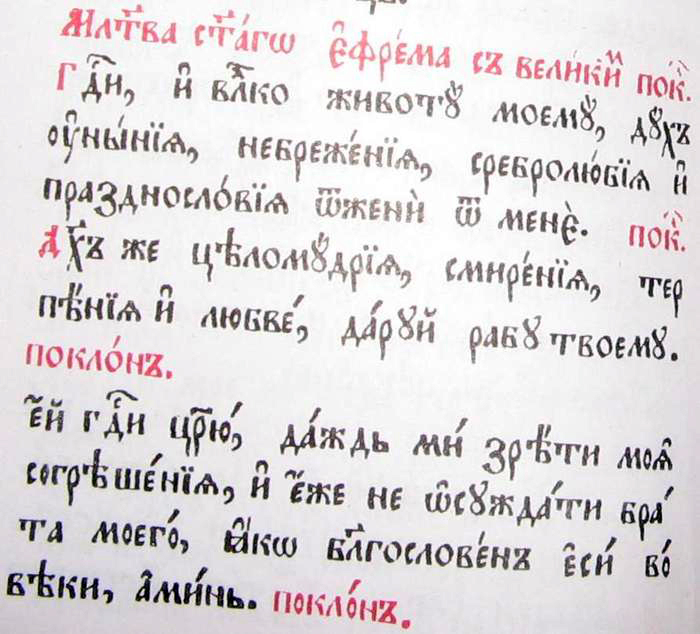 Мл҃тва ст҃а́гѡ є҆фре́ма съ вели́ки́м пок҇.
Гдⷭ҇и, и҆ влⷣко животꙋ̀ моемꙋ̀, дꙋ́хъ
ᲂу҆ны́нїѧ, небреже́нїѧ, сребролю́бїѧ и҆
празднасло́вїѧ ѿжени̇̀ ѿ менє̀. пок҇.
Дх҃ъ же цѣломꙋ́дрїѧ, смире́нїѧ, тер
пѣ́нїѧ и҆ любве́, да́рꙋй рабꙋ̀ твоемꙋ.
покло́нъ.
є҆́й гдⷭ҇и цр҃ю́, да́ждь ми́ зрѣ́ти моѧ҆
согрѣше́нїѧ, и҆ є҆́же не ѡ҆сꙋжда́ти бра́
та моего́, ꙗ҆́кѡ блⷭ҇гослове́нъ є҆си́ во́
вѣ́ки, а҆ми́нь. покло́нъ.